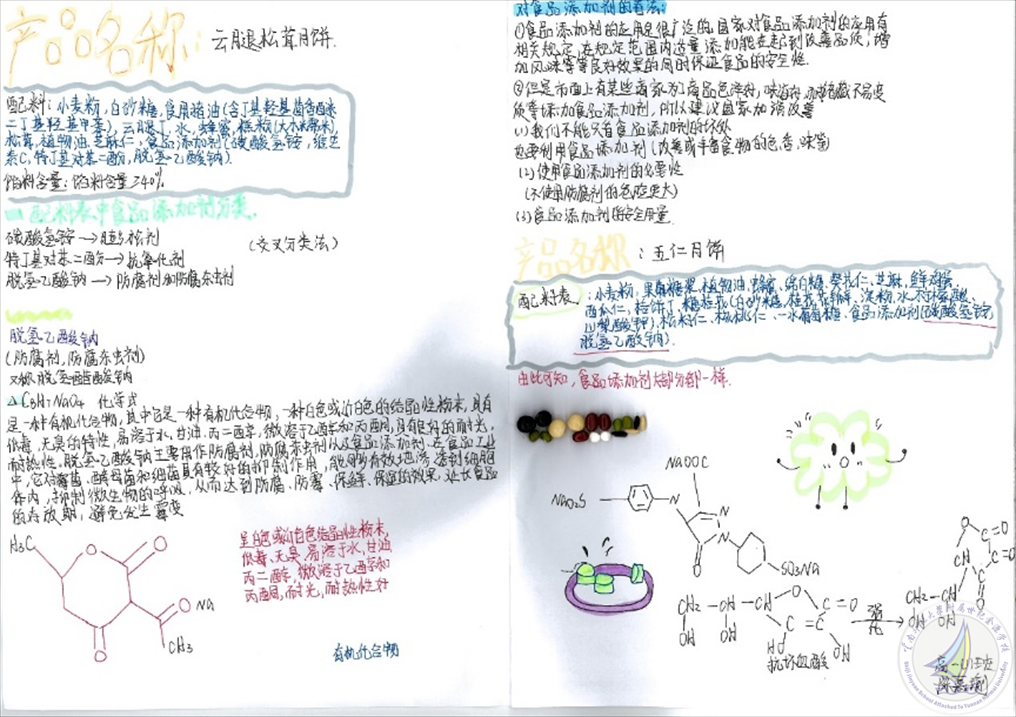 产品名称：云腿松茸月饼.
配料：小麦粉，白砂糖，食用猪油(含丁基羟基茴香醚
二丁基羟基甲苯)，云腿丁，水，蜂蜜，糕粉(大米糯米)
松茸，植物油，芝麻仁，食品添加剂(碳酸氢铵，维生
素C，特丁基对苯二酚，脱氢乙酸钠).
馅料含量：馅料含量≥40%
配料表中食品添加剂分类.
碳酸氢铵→膨松剂
(交叉分类法)
特丁基对苯二酚→抗氧化剂
脱氢乙酸钠→防腐剂和防腐杀虫剂
脱氢乙酸钠
(防腐剂，防腐杀虫剂)
又称脱氢醋酸钠
△C8H7NaO4 化学式
是一种有机化合物，其中它是一种有机化合物，一种白色或近白色的结晶性粉末，具有
低毒，无臭的特性，易溶于水，甘油，丙二醇，微溶于乙醇和丙酮，具有良好的耐光，
耐热性，脱氢乙酸钠主要用作防腐剂，防腐杀虫剂以及食品添加剂，在食品工业
中，它对霉菌，酵母菌和细菌具有较好的抑制作用，能够有效地渗透到细胞
体内，抑制微生物的呼吸，从而达到防腐、防霉、保鲜、保湿的效果，延长食品
的存放期，避免发生霉变
H3C
O
O
O
O
Na
CH3
呈白色或近白色结晶性粉末，
低毒、无臭、易溶于水，甘油，
丙二醇，微溶于乙醇和
丙酮，耐光，耐热性好
有机化合物
对食品添加剂的看法：
①食品添加剂的应用是很广泛的，国家对食品添加剂的应用有
相关规定，在规定范围内适量添加能在起到改善品质，增
加风味等等良好效果的同时保证食品的安全性.
②但是市面上有某些商家为了商品色泽好，味道好，
质等添加食品添加剂，所以建议国家加强改善
(1)我们不能只看食品添加剂的坏处
也要利用食品添加剂(改善或丰富食物的色，香，味等)
(2)使用食品添加剂的必要性
(不使用防腐剂的危险更大)
(3)食品添加剂的安全用量.
产品名称：五仁月饼
配料表：小麦粉，果葡糖浆，植物油，蜂蜜，绵白糖，葵花仁，芝麻，鲜鸡蛋，
西瓜仁，桔饼丁，糖桂花(白砂糖，桂花，
山梨酸钾)，松籽仁，核桃仁，一水葡萄糖，食品添加剂(碳酸氢铵，
脱氢乙酸钠).
由此可知，食品添加剂大部分都一样.
NaOOC
NaO3S
N
N
N
O
SO3Na
CH2-CH-CH
OH OH
O
C=O
C=C
HO OH
抗坏血酸
O
C=O
C=O
CH
C
O
CH2-CH
OH OH
高一(1)班